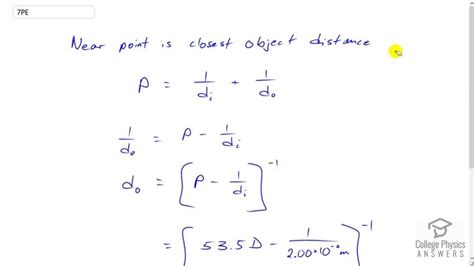 7PE
Near point is closest object distance
P = 1/di + 1/do
1/do = P - 1/di
do = [P - 1/di]⁻¹
= [53.5 D - 1/(2.00*10⁻²m)]⁻¹
College Physics
ANSWERS